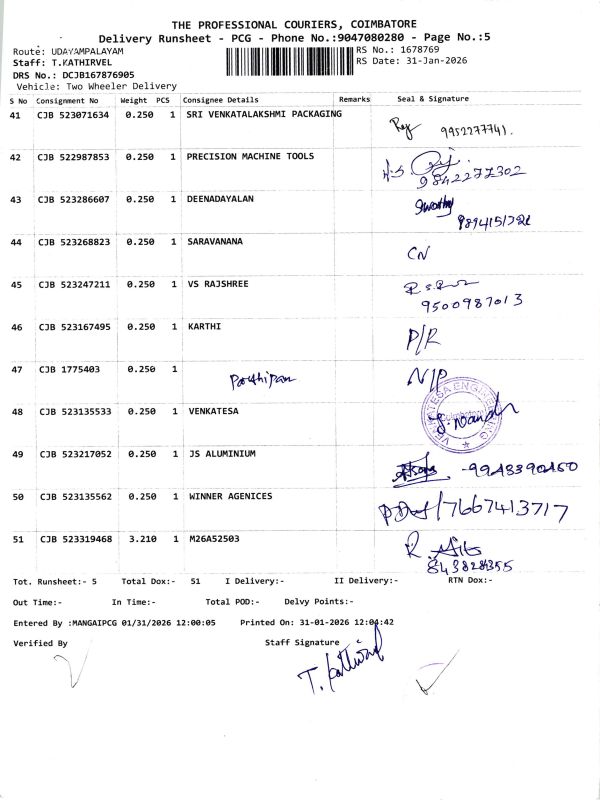 THE PROFESSIONAL COURIERS, COIMBATORE
Delivery Runsheet - PCG - Phone No.:9047080280 - Page No.:5
Route: UDAYAMPALAYAM RS No.: 1678769
Staff: T.KATHIRVEL RS Date: 31-Jan-2026
DRS No.: DCJB167876905
Vehicle: Two Wheeler Delivery
S No Consignment No Weight PCS Consignee Details Remarks Seal & Signature
41 CJB 523071634 0.250 1 SRI VENKATALAKSHMI PACKAGING 9952277741.
42 CJB 522987853 0.250 1 PRECISION MACHINE TOOLS 9842277302
43 CJB 523286607 0.250 1 DEENADAYALAN
44 CJB 523268823 0.250 1 SARAVANANA CN
45 CJB 523247211 0.250 1 VS RAJSHREE 9500987013
46 CJB 523167495 0.250 1 KARTHI P/R
47 CJB 1775403 0.250 1 Parthipan N/P
48 CJB 523135533 0.250 1 VENKATESA VENKATESA ENGINEERING
49 CJB 523217052 0.250 1 JS ALUMINIUM -9943390450
50 CJB 523135562 0.250 1 WINNER AGENICES 7667413717
51 CJB 523319468 3.210 1 M26A52503
Tot. Runsheet:- 5 Total Dox:- 51 I Delivery:- II Delivery:- RTN Dox:-
Out Time:- In Time:- Total POD:- Delvy Points:-
Entered By :MANGAIPCG 01/31/2026 12:00:05 Printed On: 31-01-2026 12:04:42
Verified By Staff Signature